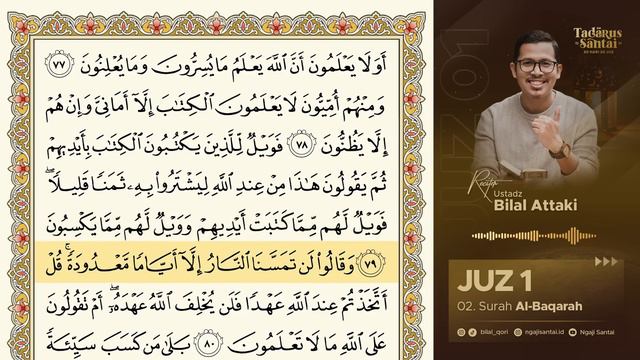 أَوَلَا يَعْلَمُونَ أَنَّ اللَّهَ يَعْلَمُ مَا يُسِرُّونَ وَمَا يُعْلِنُونَ ٧٧
وَمِنْهُمْ أُمِّيُّونَ لَا يَعْلَمُونَ الْكِتَابَ إِلَّا أَمَانِيَّ وَإِنْ هُمْ
إِلَّا يَظُنُّونَ ٧٨ فَوَيْلٌ لِلَّذِينَ يَكْتُبُونَ الْكِتَابَ بِأَيْدِيهِمْ
ثُمَّ يَقُولُونَ هَٰذَا مِنْ عِنْدِ اللَّهِ لِيَشْتَرُوا بِهِ ثَمَنًا قَلِيلًا ۖ
فَوَيْلٌ لَهُمْ مِمَّا كَتَبَتْ أَيْدِيهِمْ وَوَيْلٌ لَهُمْ مِمَّا يَكْسِبُونَ
٧٩ وَقَالُوا لَنْ تَمَسَّنَا النَّارُ إِلَّا أَيَّامًا مَعْدُودَةً ۚ قُلْ
أَتَّخَذْتُمْ عِنْدَ اللَّهِ عَهْدًا فَلَنْ يُخْلِفَ اللَّهُ عَهْدَهُ ۖ أَمْ تَقُولُونَ
عَلَى اللَّهِ مَا لَا تَعْلَمُونَ ٨٠ بَلَىٰ مَنْ كَسَبَ سَيِّئَةً
Tadarus
Santai
30 HARI 30 JUZ
JUZ 01
Reciter
Ustadz
Bilal Attaki
JUZ 1
02. Surah Al-Baqarah
bilal_qori
ngajisantai.id
Ngaji Santai